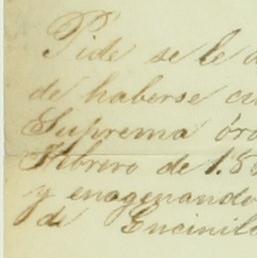 Pide se le
de haberse
Suprema
Febrero de 1.8
y enagenando
de Encinil